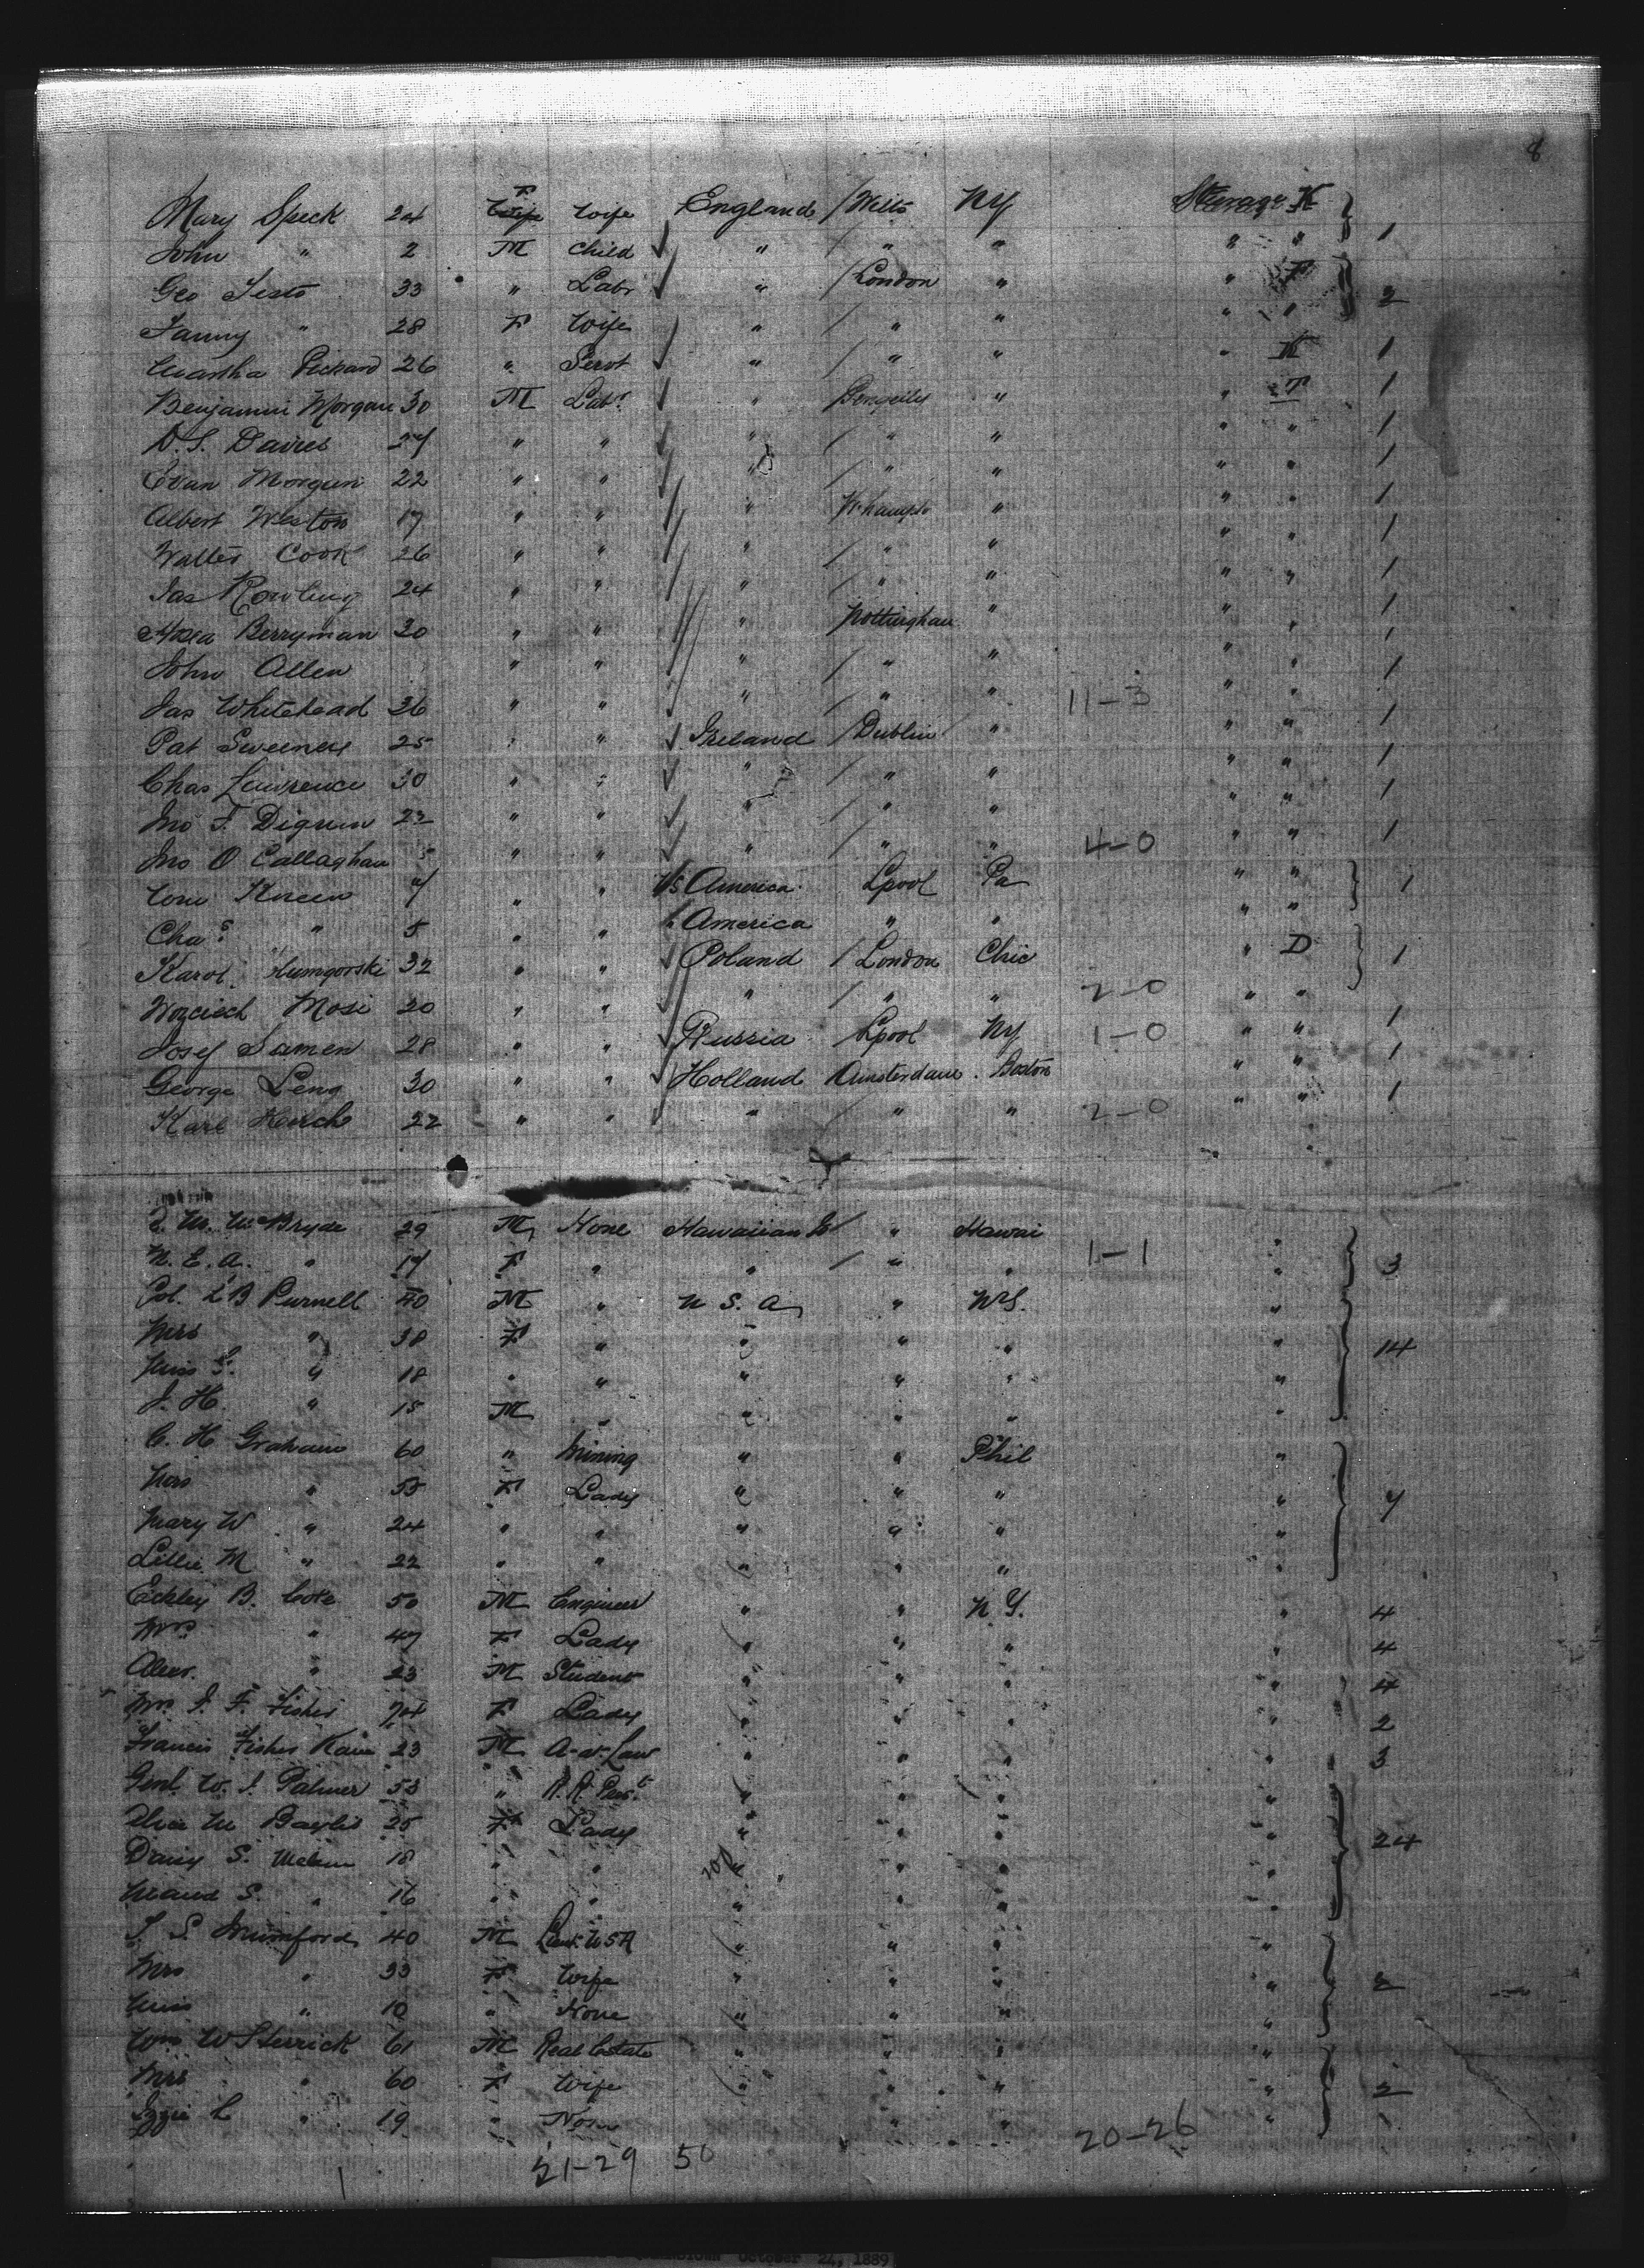 8
Mary Speck 24 F Wife England / Wilts NY Steerage K
John " 2 M Child " / " " " " 1
Geo 33 " Labr " / London " " F
Fanny " 28 F Wife " / " " " " 2
Martha Pickard 26 " Servt " / " " " K 1
Benjamin Morgan 30 M Labr " / " " F 1
D. S. Davies 27 " " " / " " " " 1
Evan Morgan 22 " " " / " " " " 1
Albert Weston 17 " " " " " " 1
Walter Cook 26 " " " / " " " " 1
Jas Rowling 24 " " " / " " " " 1
Berryman 30 " " " Nottingham " " " 1
John Allen " " " / " " " " 1
Jas Whitehead 36 " " " / " " 11-3 " " 1
Pat Sweeney 25 " " Ireland / Dublin " " " 1
Chas Lawrence 30 " " " / " " " " 1
Jno F. 22 " " " / " " " " 1
Jno O Callaghan " " " / " " 4-0 " " 1
" " US America Lpool Pa " "
Chas " 5 " " America " " " " 1
Karol 32 " " Poland / London Chic " D
Wojciech Mosi 20 " " " / " " 2-0 " " 1
Josef Samen 28 " " Russia / Lpool NY 1-0 " " 1
George Leng 30 " " Holland / Amsterdam Boston " " 1
Karl 22 " " " / " " 2-0 " " 1
McBryde 29 M None Hawaiian / " Hawai "
N. E. A. " 17 F " " / " " 1-1 " 3
Col. L B Purnell 40 M " U S. A " "
Mrs " 38 F " " " " " 14
Miss " 18 " " " " " "
J. H. " 15 M " " " " "
C. H Graham 60 " Mining " " Phil "
Mrs " 55 F Lady " " " " 7
Mary W " 24 " " " " " "
Lillie M " 22 " " " " " "
Eckley B. Coxe 50 M Engineer " " N Y. " 4
Mrs " 47 F Lady " " " " 4
Alexr. " 23 M Student " " " " 4
Mrs J. F. Fisher 74 F Lady " " " " 2
Francis Fisher Kane 23 M A-at-Law " " " " 3
Genl W. J. Palmer 53 " R. R. Prest " " " "
M Baylis 25 F Lady " " " " 24
Daisy S. 18 " " " " " "
Maud S. " 16 " " " " " "
T. S. Mumford 40 M USA " " " "
Mrs " 33 F Wife " " " " 2
Miss " 10 " None " " " "
Wm W Sterrick 61 M Real Estate " " " "
Mrs " 60 F Wife " " " " 2
L " 19 " None " " "
20-26
21-29 50
October 24, 1889